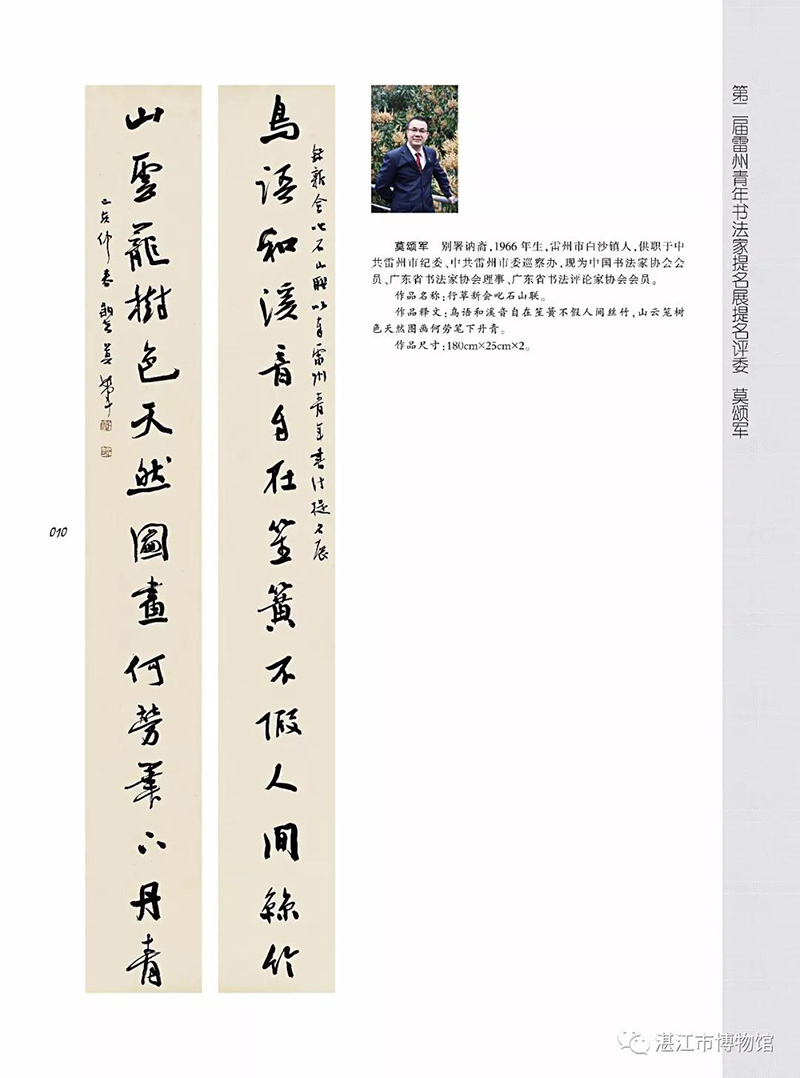 鳥語和溪音自在笙簧不假人間絲竹
錄新會叱石山聯以有雷州青年書法提名展
山雲籠樹色天然圖畫何勞筆下丹青
莫颂军 别署讷斋,1966年生,雷州市白沙镇人,供职于中
共雷州市纪委、中共雷州市委巡察办,现为中国书法家协会会
员、广东省书法家协会理事、广东省书法评论家协会会员。
作品名称:行草新会叱石山联。
作品释文:鸟语和溪音自在笙簧不假人间丝竹,山云笼树
色天然图画何劳笔下丹青。
作品尺寸:180cm×25cm×2。
第二届雷州青年书法家提名展提名评委 莫颂军
010
湛江市博物馆